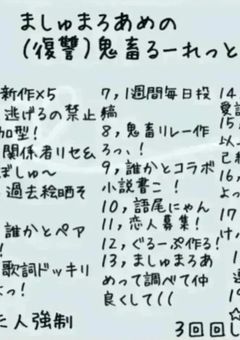 ましゅまろあめの
(復讐)鬼畜るーれっと
新作×5
逃げるの禁止
加型!
関係者リセ&
ばしゅ〜
過去絵晒そ
誰かとペア
!
歌詞ドッキリ
っ!
た人強制
7,1週間毎日投
稿
8,鬼畜リレー作
ろっ、!
9,誰かとコラボ
小説書こ!
10,語尾にゃん
11,恋人募集!
12,ぐるーぷ作る!
13,ましゅまろあ
めって調べて仲
良くして((
14,
15,
以上
16,
よっ
17
1
19
☆
3回回し